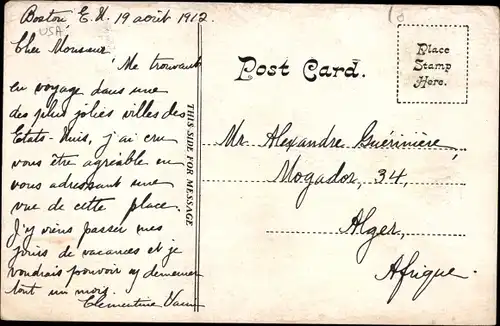 Boston E.U. 19 août 1912.
USA
Cher Monsieur
Me trouvant
en voyage dans une
des plus jolies villes des
Etats-Unis, j'ai cru
vous être agréable en
vous adressant une
vue de cette place.
J'y viens passer mes
jours de vacances et je
voudrais pouvoir y demeurer
tout un mois.
Clementine
THIS SIDE FOR MESSAGE
Post Card.
Place
Stamp
Here.
Mr. Alexandre Guérinière,
Mogador, 34,
Alger,
Afrique.